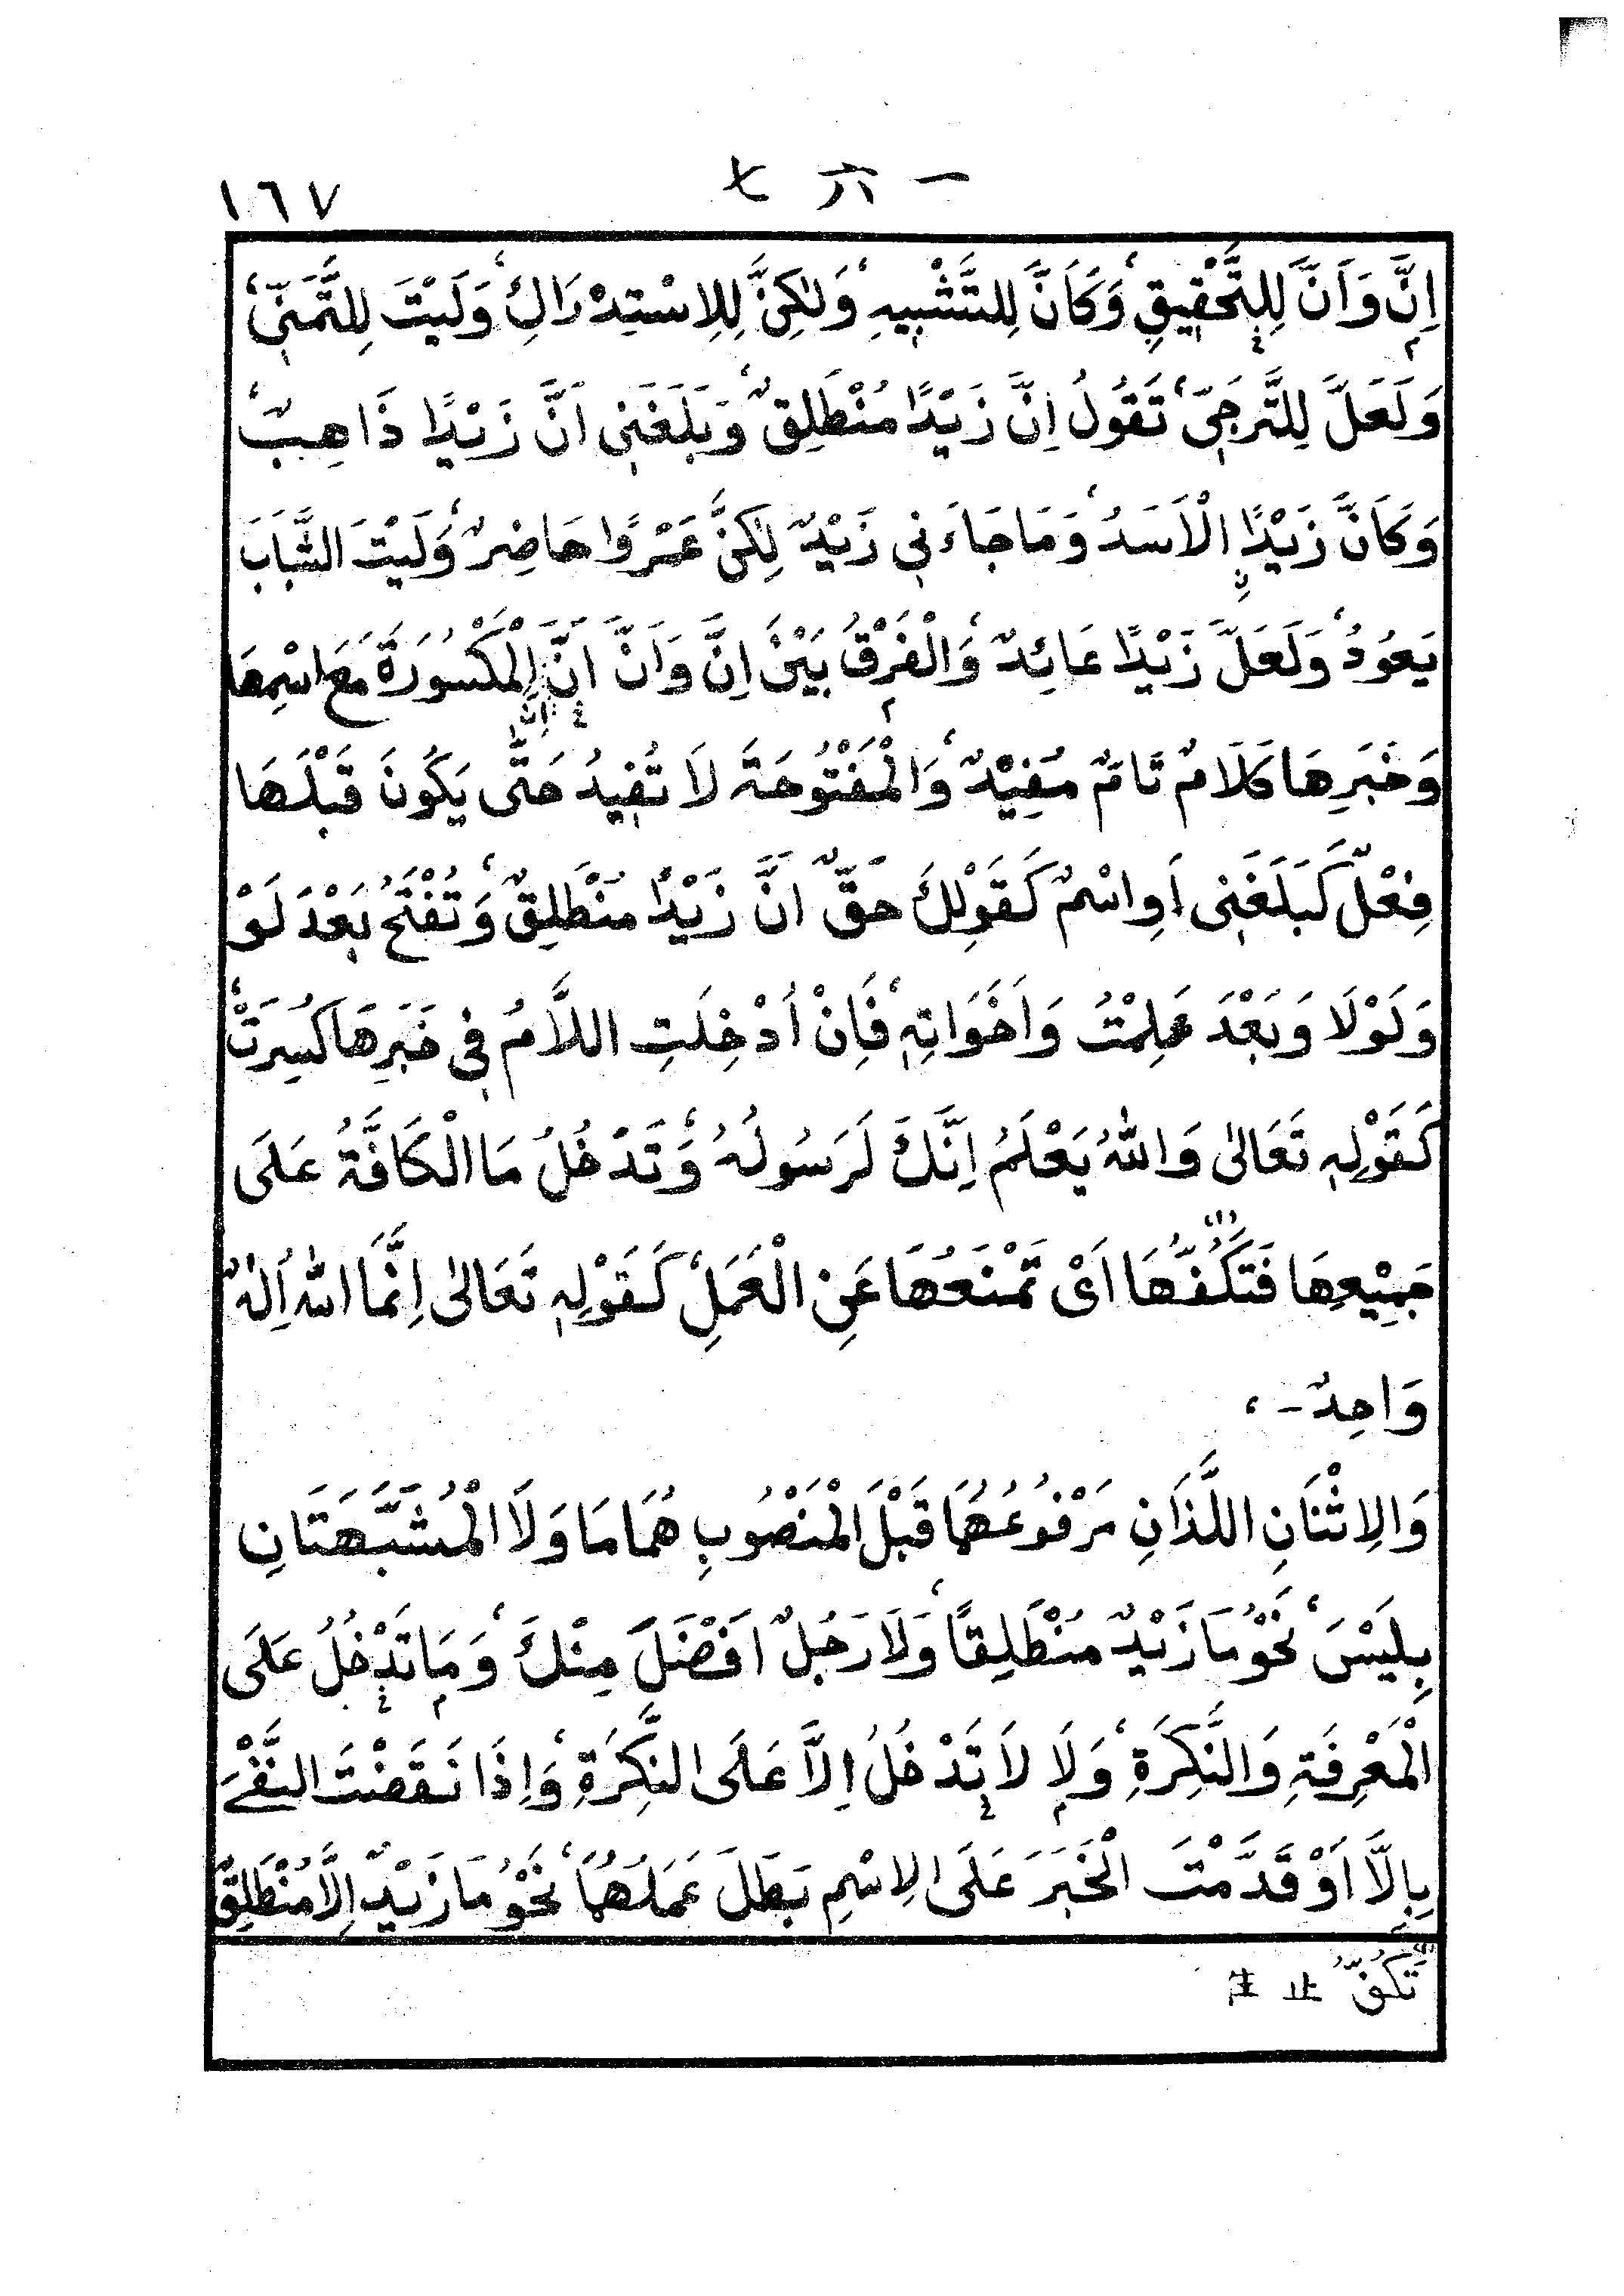 一六七 ١٦٧
اِنَّ وَاَنَّ لِلتَّحْقِيقِ، وَكَاَنَّ لِلتَّشْبِيهِ، وَلٰكِنَّ لِلِاسْتِدْرَاكِ، وَلَيْتَ لِلتَّمَنِّي،
وَلَعَلَّ لِلتَّرَجِّيّ، تَقُولُ اِنَّ زَيْدًا مُنْطَلِقٌ، وَبَلَغَنِي اَنَّ زَيْدًا ذَاهِبٌ،
وَكَاَنَّ زَيْدًا الْاَسَدُ، وَمَا جَاءَنِي زَيْدٌ لٰكِنَّ عَمْرًوا حَاضِرٌ، وَلَيْتَ الشَّبَابَ
يَعُودُ، وَلَعَلَّ زَيْدًا عَائِدٌ، وَالْفَرْقُ بَيْنَ اِنَّ وَاَنَّ اَنَّ الْمَكْسُورَةَ مَعَ اسْمِهَا
وَخَبَرِهَا كَلَامٌ تَامٌّ مُفِيْدٌ، وَالْمَفْتُوحَةَ لَا تُفِيدُ حَتّٰى يَكُونَ قَبْلَهَا
فِعْلٌ كَبَلَغَنِي اَوِ اسْمٌ كَقَوْلِكَ حَقٌّ اَنَّ زَيْدًا مُنْطَلِقٌ، وَتُفْتَحُ بَعْدَ لَوْ
وَلَوْلَا وَبَعْدَ عَلِمْتُ وَاَخَوَاتِهِ، فَاِنْ اُدْخِلَتِ اللَّامُ فِي خَبَرِهَا كُسِرَتْ،
كَقَوْلِهِ تَعَالٰى وَاللّٰهُ يَعْلَمُ اِنَّكَ لَرَسُولُهُ، وَتَدْخُلُ مَا الْكَافَّةُ عَلَى
جَمِيْعِهَا فَتَكُفُّهَا(١) اَىْ تَمْنَعُهَا عَنِ الْعَمَلِ، كَقَوْلِهِ تَعَالٰى اِنَّمَا اللّٰهُ اِلٰهٌ
وَاحِدٌ -،
وَالِاثْنَانِ اللَّذَانِ مَرْفُوعُهُمَا قَبْلَ الْمَنْصُوبِ هُمَا مَا وَلَا الْمُشَبَّهَتَانِ
بِلَيْسَ، نَحْوُ مَا زَيْدٌ مُنْطَلِقًا، وَلَا رَجُلٌ اَفْضَلَ مِنْكَ، وَمَا تَدْخُلُ عَلَى
الْمَعْرِفَةِ وَالنَّكِرَةِ، وَلَا لَا تَدْخُلُ اِلَّا عَلَى النَّكِرَةِ، وَاِذَا نَقَضْتَ النَّفْيَ
بِاِلَّا اَوْ قَدَّمْتَ الْخَبَرَ عَلَى الِاسْمِ بَطَلَ عَمَلُهُمَا، نَحْوُ مَا زَيْدٌ اِلَّا مُنْطَلِقٌ
(١) تَكُفُّ 止住